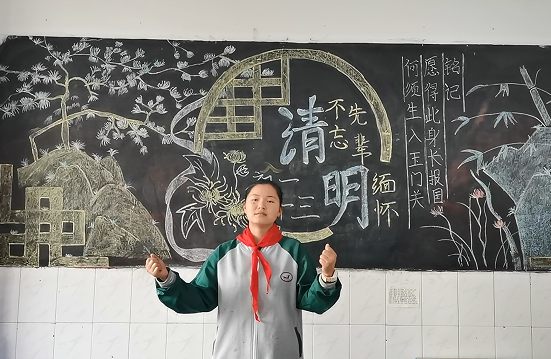 清明
不忘
先辈
缅怀
二三
铭记
愿得此身长报国
何须生入玉门关